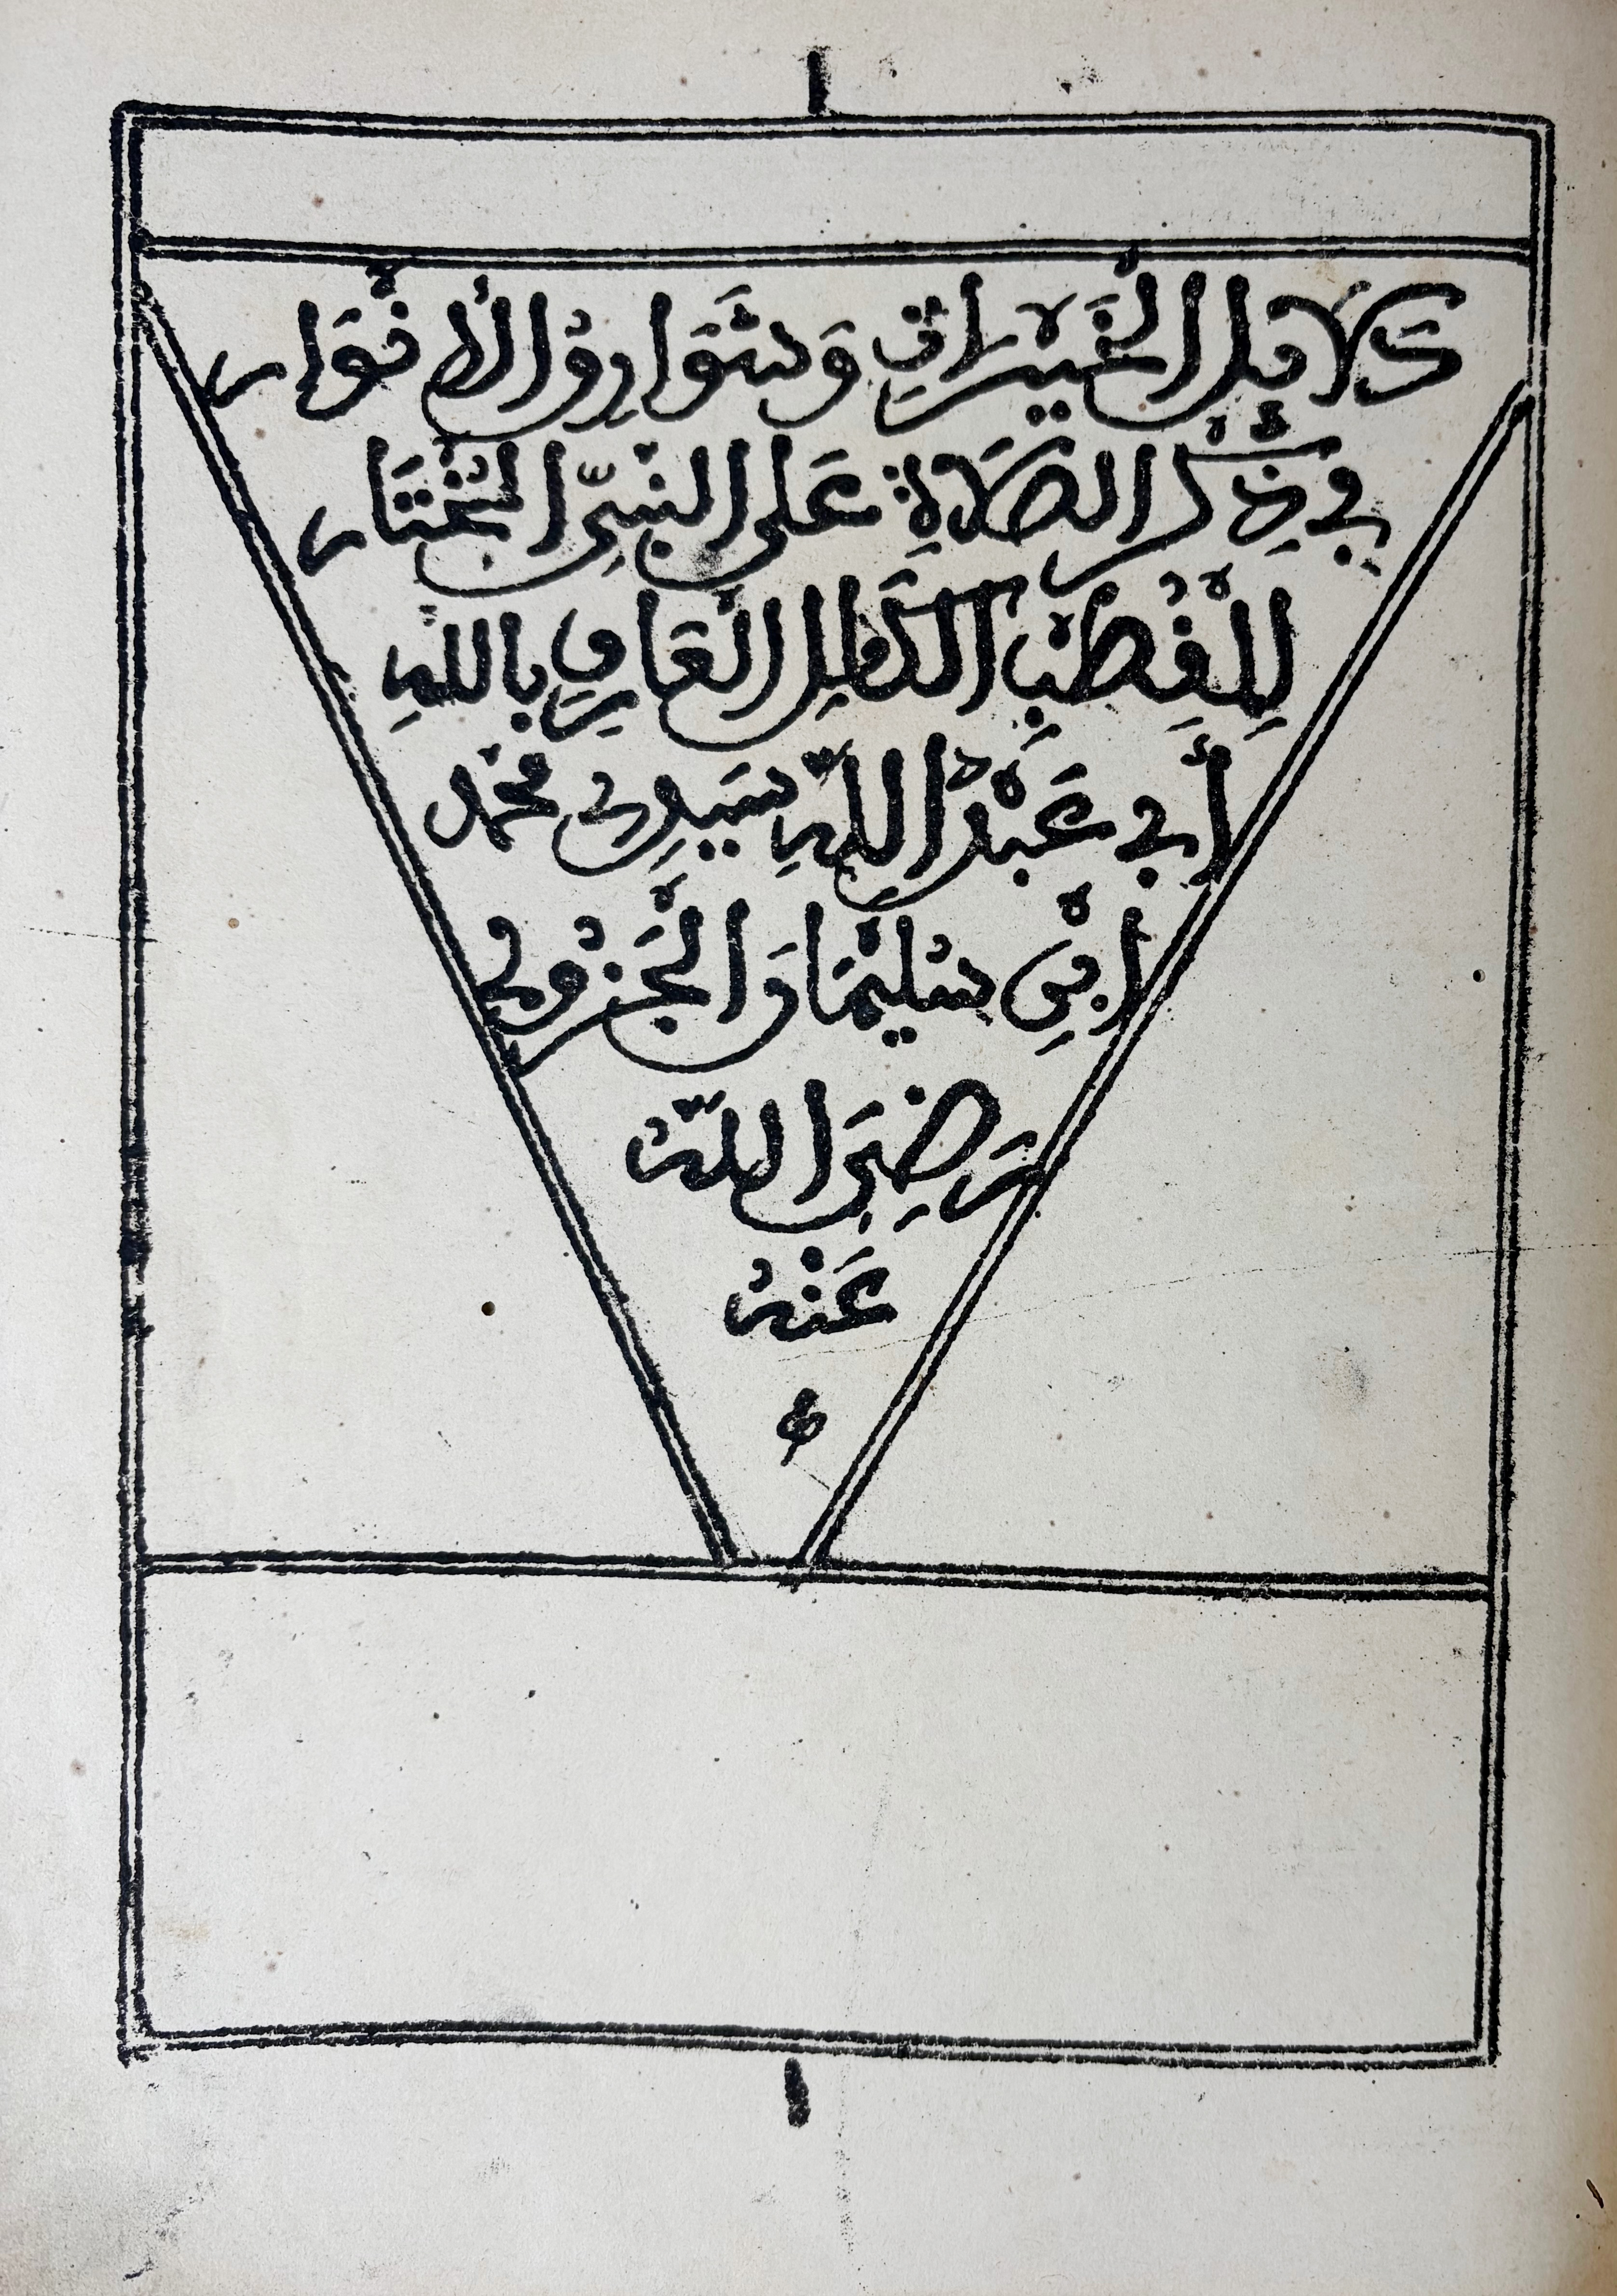 ١
دَلَائِلُ الْخَيْرَاتِ وَشَوَارِقُ الْأَنْوَارِ
فِي ذِكْرِ الصَّلَاةِ عَلَى النَّبِيِّ الْمُخْتَارِ
لِلْقُطْبِ الْكَامِلِ الْعَارِفِ بِاللَّهِ
أَبِي عَبْدِ اللَّهِ سَيِّدِي مُحَمَّد
ابْنِ سُلَيْمَانَ الْجَزُولِي
رَضِيَ اللَّهُ
عَنْهُ
١